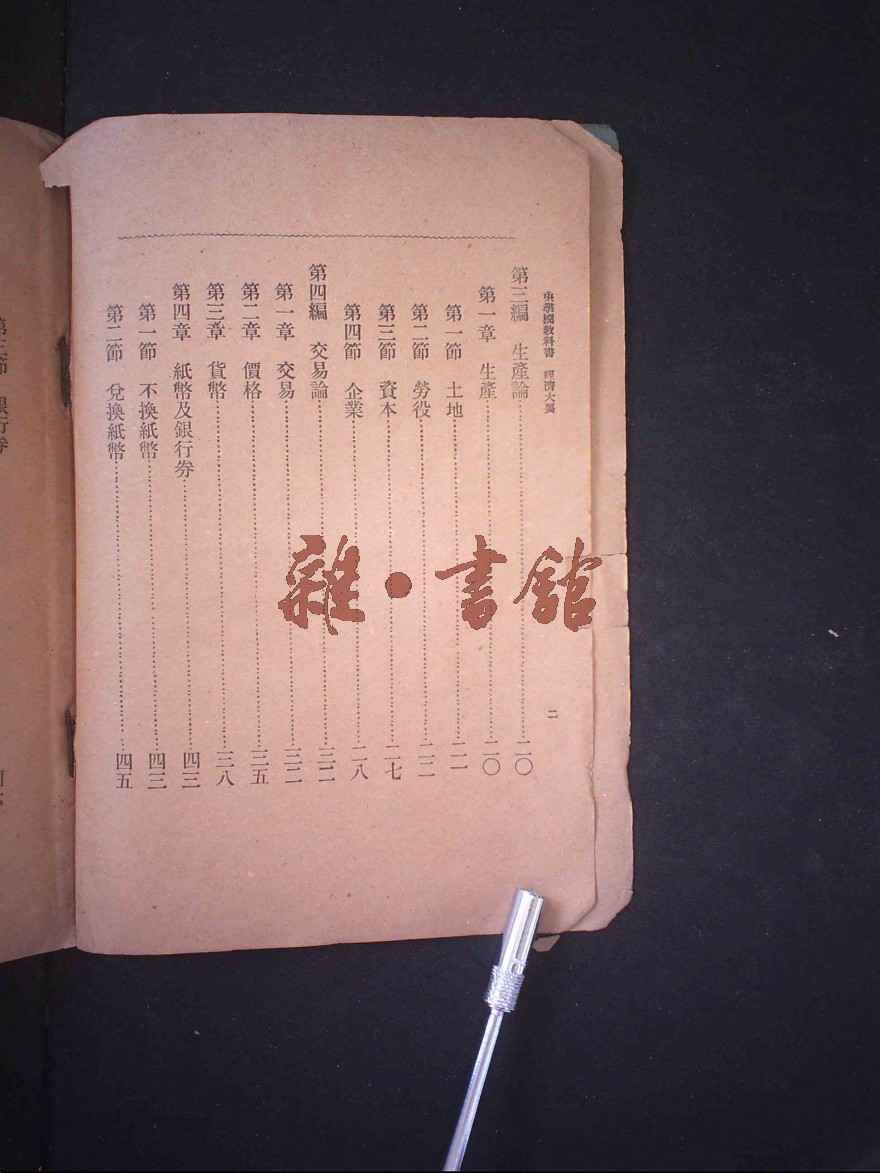 教科書 經濟大要
二
第三編 生產論 二〇
第一章 生產 二〇
第一節 土地 二一
第二節 勞役 二二
第三節 資本 二七
第四節 企業 二八
第四編 交易論 三二
第一章 交易 三二
第二章 價格 三五
第三章 貨幣 三八
第四章 紙幣及銀行券 四三
第一節 不換紙幣 四三
第二節 兌換紙幣 四五
雜·書館